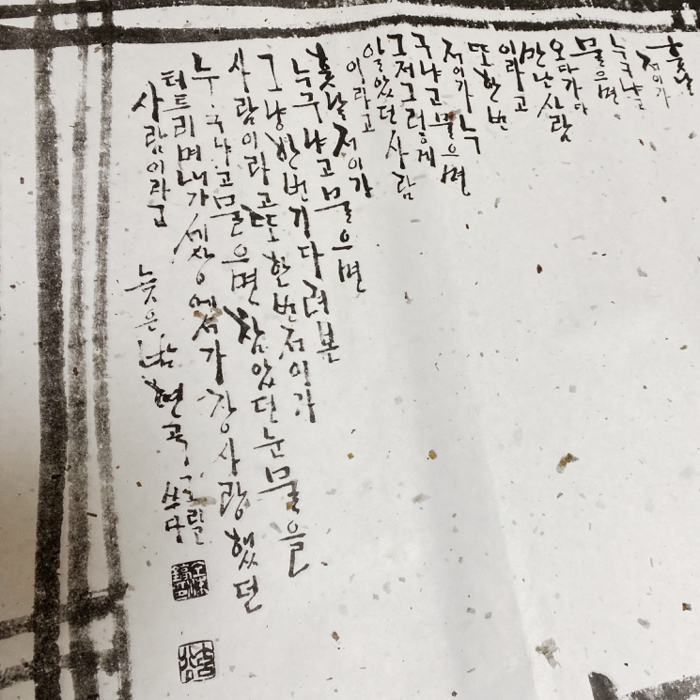 훗날
저이가
누구냐고
물으며
오다가다
만난 사람
이라고
또 한 번
저이가 누
구냐고 물으면
그저 그렇게
알았던 사람
이라고
훗날 저이가
누구냐고 물으면
그냥 한번 기다려 본
사람이라고 또 한번 저이가
누구냐고 물으면 참았던 눈물을
터트리며 내가 세상에서 가장 사랑했던
사람이라고
늦은 밤
쓰다